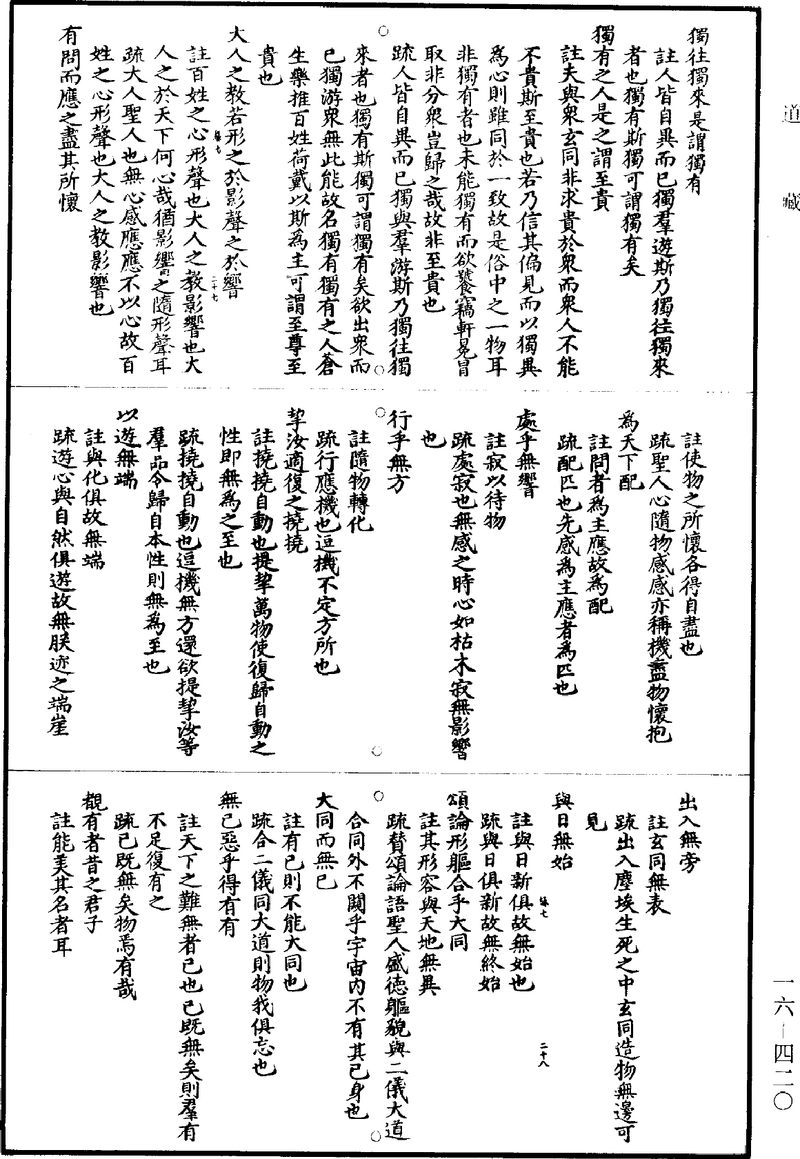 道藏
獨往獨來是謂獨有
註人皆自異而已獨羣遊斯乃獨往獨來
者也獨有斯獨可謂獨有矣
獨有之人是之謂至貴
註夫與衆玄同非求貴於衆而衆人不能
不貴斯至貴也若乃信其偏見而以獨異
為心則雖同於一致故是俗中之一物耳
非獨有者也未能獨有而欲饕竊軒冕冒
取非分衆豈歸之哉故非至貴也
疏人皆自異而已獨與羣游斯乃獨往獨
來者也獨有斯獨可謂獨有矣欲出衆而
已獨游衆無此能故名獨有獨有之人蒼
生樂推百姓荷戴以斯為主可謂至尊至
貴也
大人之教若形之於影聲之於響
註百姓之心形聲也大人之教影響也大
人之於天下何心哉猶影響之隨形聲耳
疏大人聖人也無心感應應不以心故百
姓之心形聲也大人之教影響也
有問而應之盡其所懷
二十七
註使物之所懷各得自盡也
疏聖人心隨物感感亦稱機盡物懷抱
為天下配
註問者為主應故為配
疏配匹也先感為主應者為匹也
處乎無響
註寂以待物
疏處寂也無感之時心如枯木寂無影響
也
行乎無方
註隨物轉化
疏行應機也逗機不定方所也
挈汝適復之撓撓
註撓撓自動也提挈萬物使復歸自動之
性即無為之至也
疏撓撓自動也逗機無方還欲提挈汝等
羣品令歸自本性則無為至也
以遊無端
註與化俱故無端
疏遊心與自然俱遊故無朕迹之端崖
出入無旁
註玄同無表
疏出入塵埃生死之中玄同造物無邊可
見
與日無始
註與日新俱故無始也
疏與日俱新故無終始
頌論形軀合乎大同
註其形容與天地無異
疏贊頌論語聖人盛德軀貌與二儀大道
合同外不闚乎宇宙內不有其己身也
大同而無己
註有己則不能大同也
疏合二儀同大道則物我俱忘也
無己惡乎得有有
註天下之難無者己也己既無矣則羣有
不足復有之
疏己既無矣物焉有哉
覩有者昔之君子
註能美其名者耳
二十八
一六–四二〇